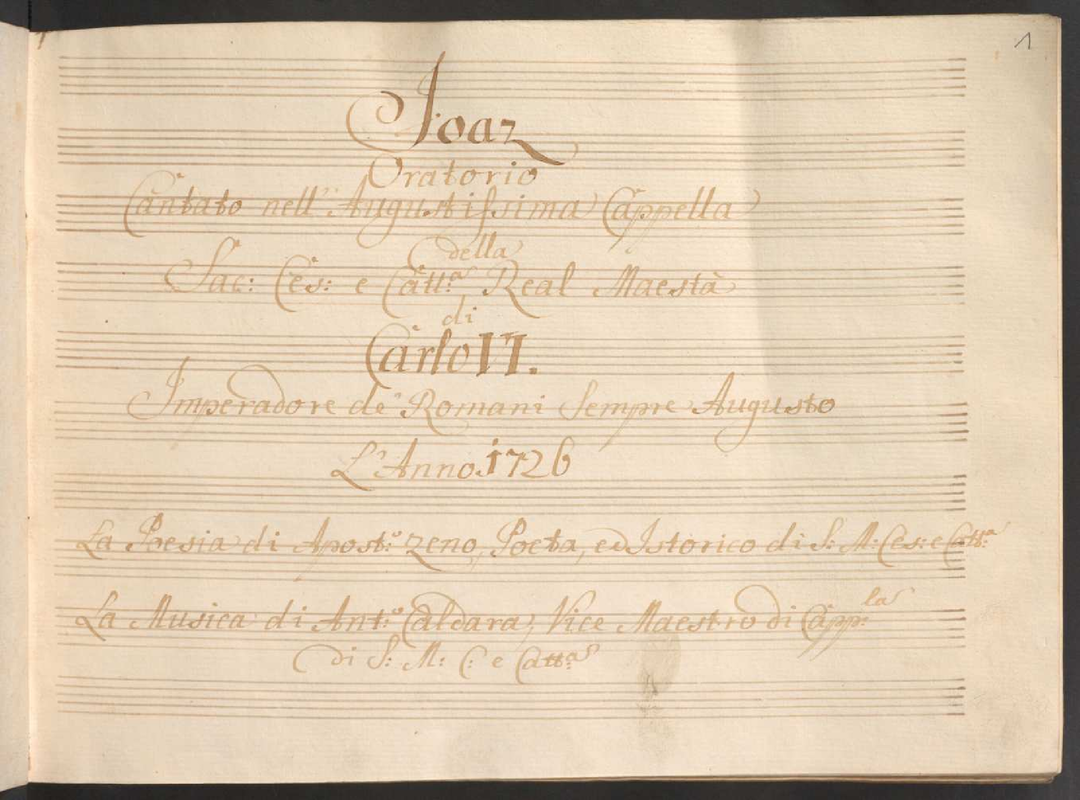 1
Joaz
Oratorio
Cantato nell' Augustissima Cappella
della
Sac: Ces: e Catt:ª Real Maestà
di
Carlo VI.
Imperadore de' Romani Sempre Augusto
L'Anno 1726
La Poesia di Apost:º Zeno, Poeta, ed Istorico di S: M: Ces: e Catt:ª
La Musica di Ant:º Caldara, Vice Maestro di Capp:la
di S: M: C: e Catt:ª